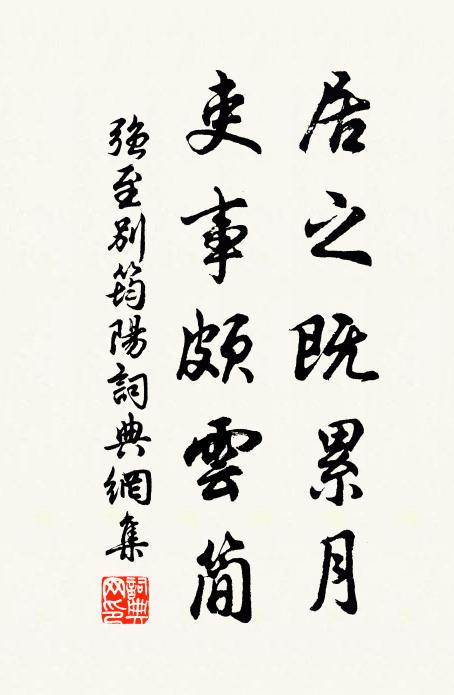 居之既累月
吏事頗雲簡
強至別筠陽詞典網集
詞典
网印